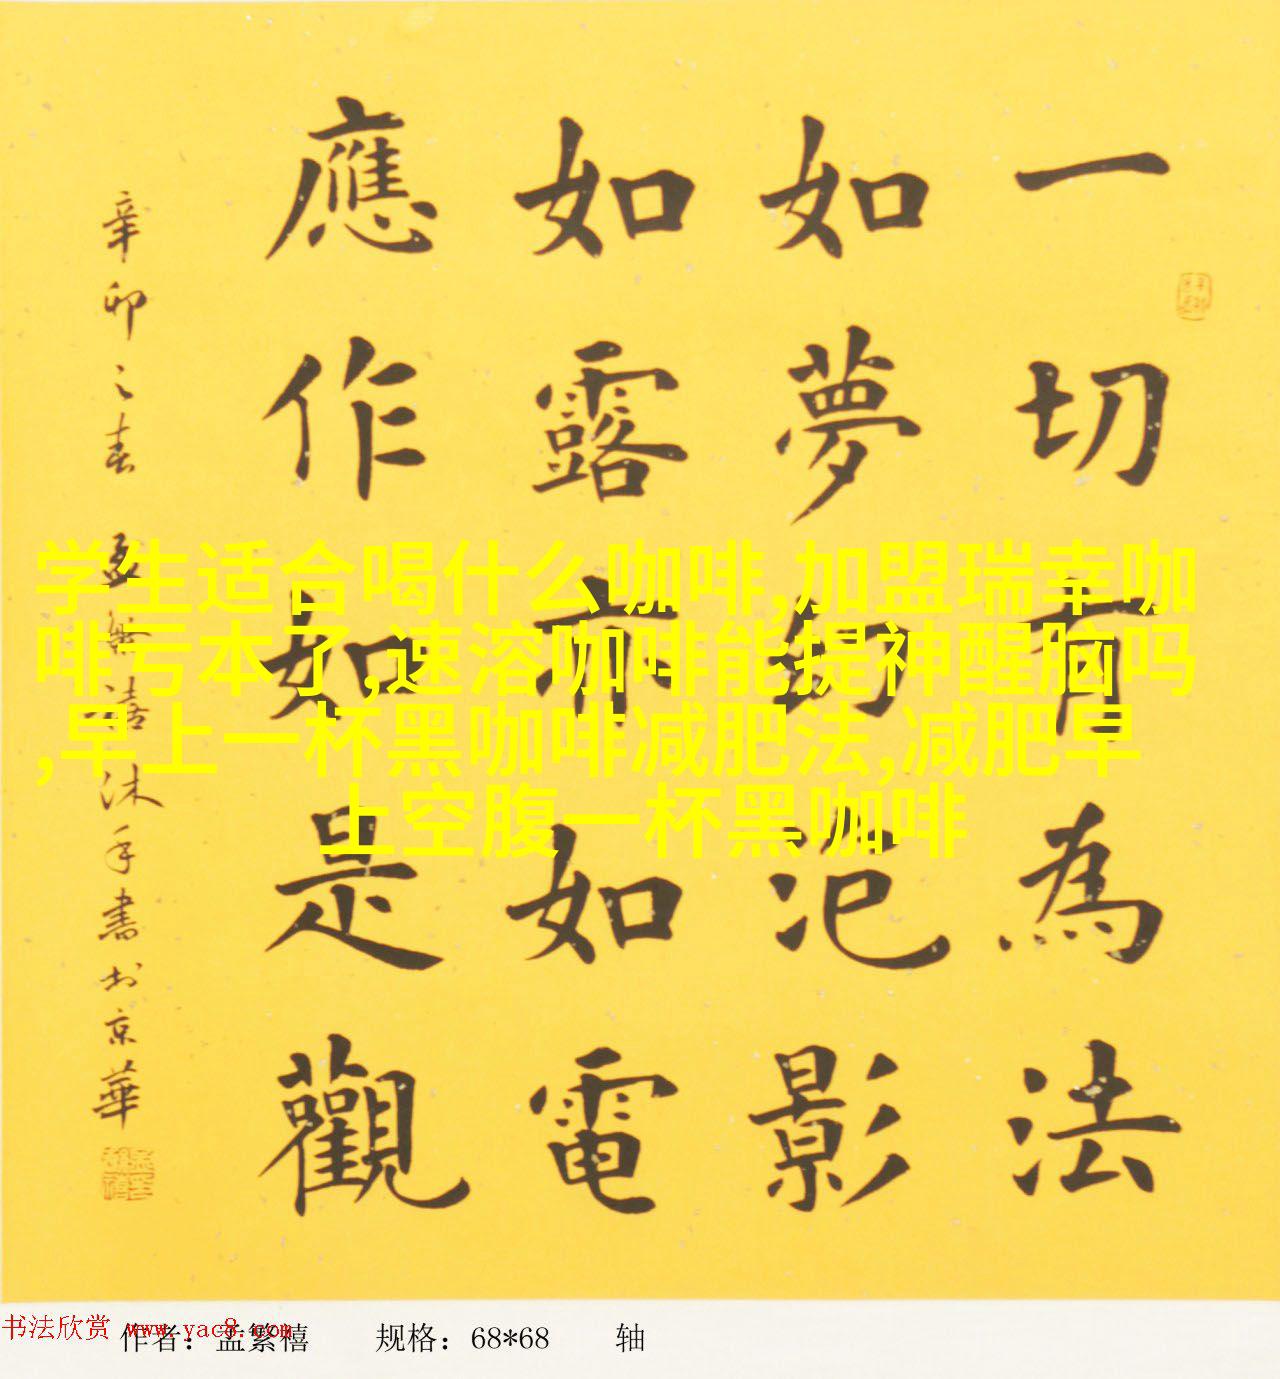 一切有為法
如夢幻泡影
如露亦如電
應作如是觀
辛卯之春 孟繁禧沐手書於京華
学生适合喝什么咖啡,加盟瑞幸咖
啡亏本了,速溶咖啡能提神醒脑吗
,早上一杯黑咖啡减肥法,减肥早
上空腹一杯黑咖啡
书法欣赏 www.yac8.com
作者：孟繁禧 规格：68*68 轴